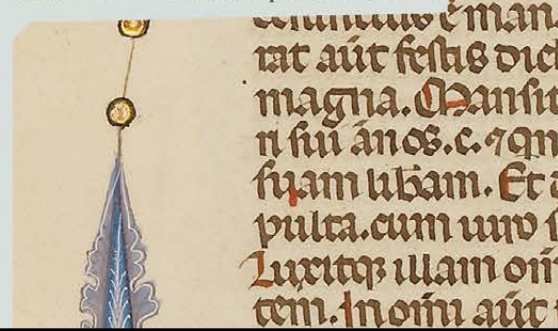 rat aut festis die
magna. Mansi
ri sui anos. c. ⁊ qn
suam libam. Et
pulta. cum uiro
Luxitqꝫ illam om
tem. In omi aut